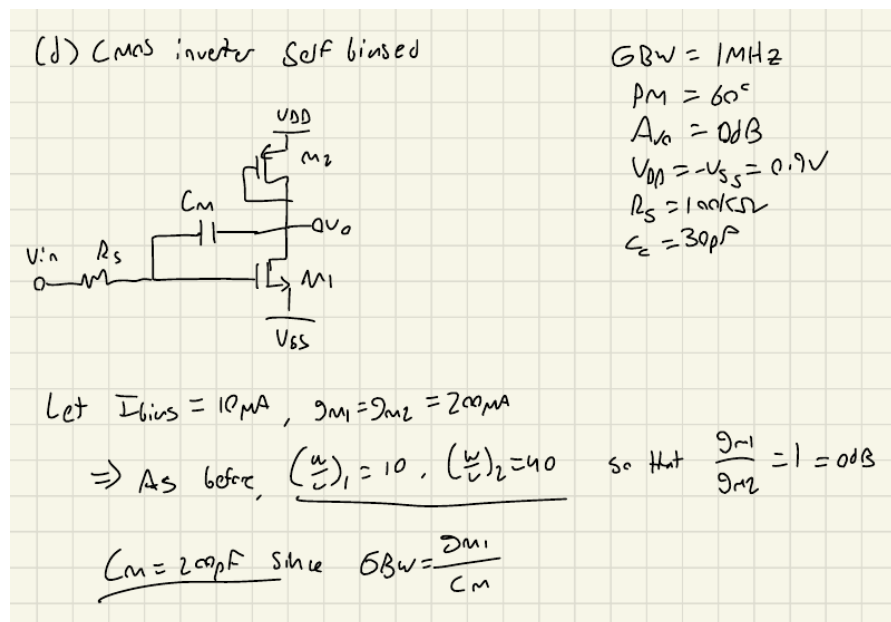 (d) CMOS inverter Self biased
GBW = 1MHz
PM = 60°
Avo = 0dB
VDD = -VSS = 0.9V
RS = 100kΩ
CL = 30pF
VDD
M2
CM
Vo
Vin RS
M1
VSS
Let Ibias = 10μA, gm1 = gm2 = 200μA
⇒ As before, (W/L)1 = 10, (W/L)2 = 40 so that gm1/gm2 = 1 = 0dB
CM = 200pF since GBW = gm1/CM